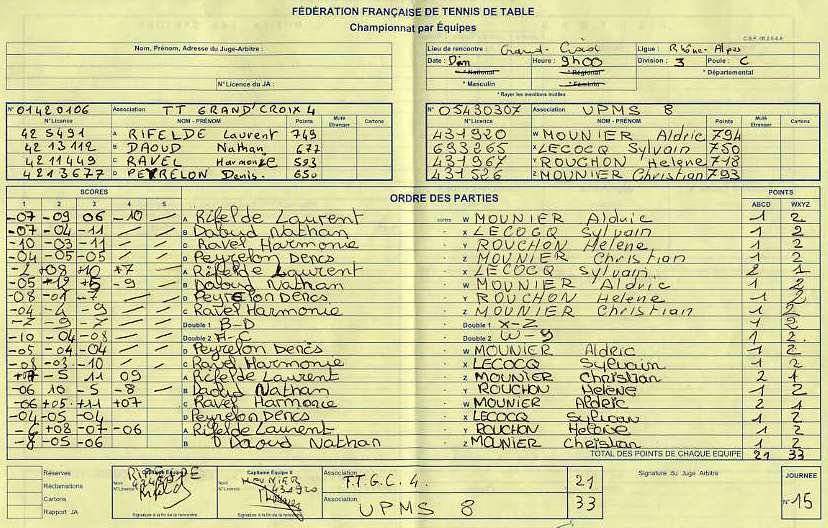 FÉDÉRATION FRANÇAISE DE TENNIS DE TABLE
Championnat par Équipes
Nom, Prénom, Adresse du Juge-Arbitre :
N° Licence du JA :
Lieu de rencontre : Grand-Croix Ligue : Rhône-Alpes
Date : Dim Heure : 9h00 Division : 3 Poule : C
* National * Régional * Départemental
* Masculin * Féminin
* Rayer les mentions inutiles
N° 01420106 Association TT GRAND'CROIX 4
N° Licence NOM - PRÉNOM Points Muté Etranger Cartons
425491 A RIFELDE Laurent 749
4213112 B DAOUD Nathan 677
4211449 C RAVEL Harmonie 593
4213677 D PEYRELON Denis 650
N° 05430307 Association UPMS 8
N° Licence NOM - PRÉNOM Points Muté Etranger Cartons
431920 W MOUNIER Aldric 794
693265 X LECOCQ Sylvain 750
431967 Y ROUCHON Helene 718
431526 Z MOUNIER Christian 793
SCORES ORDRE DES PARTIES POINTS
1 2 3 4 5 ABCD WXYZ
-07 -09 06 -10 A Rifelde Laurent contre W MOUNIER Aldric 1 2
-07 -04 -11 B Daoud Nathan - X LECOCQ Sylvain 1 2
-10 -03 -11 C Ravel Harmonie - Y ROUCHON Helene 1 2
-04 -05 -05 D Peyrelon Denis - Z MOUNIER Christian 1 2
-2 +08 +10 +7 A Rifelde Laurent - X LECOCQ Sylvain 2 1
-05 +12 +5 -9 B Daoud Nathan - W MOUNIER Aldric 1 2
-08 -01 -7 D Peyrelon Denis - Y ROUCHON Helene 1 2
-04 -4 -9 C Ravel Harmonie - Z MOUNIER Christian 1 2
-2 -9 -7 Double 1 B-D - Double 1 X-Z 1 2
-10 -04 -08 Double 2 A-C - Double 2 W-Y 1 2
-05 -04 -04 D Peyrelon Denis - W MOUNIER Aldric 1 2
-08 -03 -10 C Ravel Harmonie - X LECOCQ Sylvain 1 2
+07 -5 11 09 A Rifelde Laurent - Z MOUNIER Christian 2 1
-06 10 -5 -8 B Daoud Nathan - ROUCHON Helene 1 2
-06 +05 +11 +07 C Ravel Harmonie - W MOUNIER Aldric 2 1
-04 -05 -04 D Peyrelon Denis - X LECOCQ Sylvain 1 2
-6 +08 -07 -06 A Rifelde Laurent - Y ROUCHON Helene 1 2
-8 -05 -06 B Daoud Nathan - Z MOUNIER Christian 1 2
TOTAL DES POINTS DE CHAQUE EQUIPE 21 33
Réserves
Réclamations
Cartons
Rapport JA
Capitaine Equipe
Nom RIFELDE
N° Licence 425491
Signature à la fin de la rencontre
Capitaine Equipe X
Nom MOUNIER
N° Licence 431920
Signature à la fin de la rencontre
Association T.T.G.C. 4. 21
Association UPMS 8 33
Signature du Juge Arbitre
JOURNÉE
N° 15